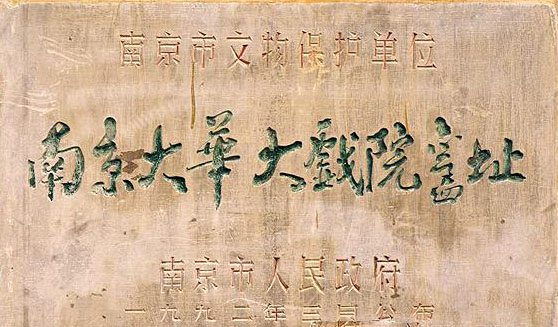 南京市文物保护单位
南京大华大戏院旧址
南京市人民政府
一九九二年三月公布